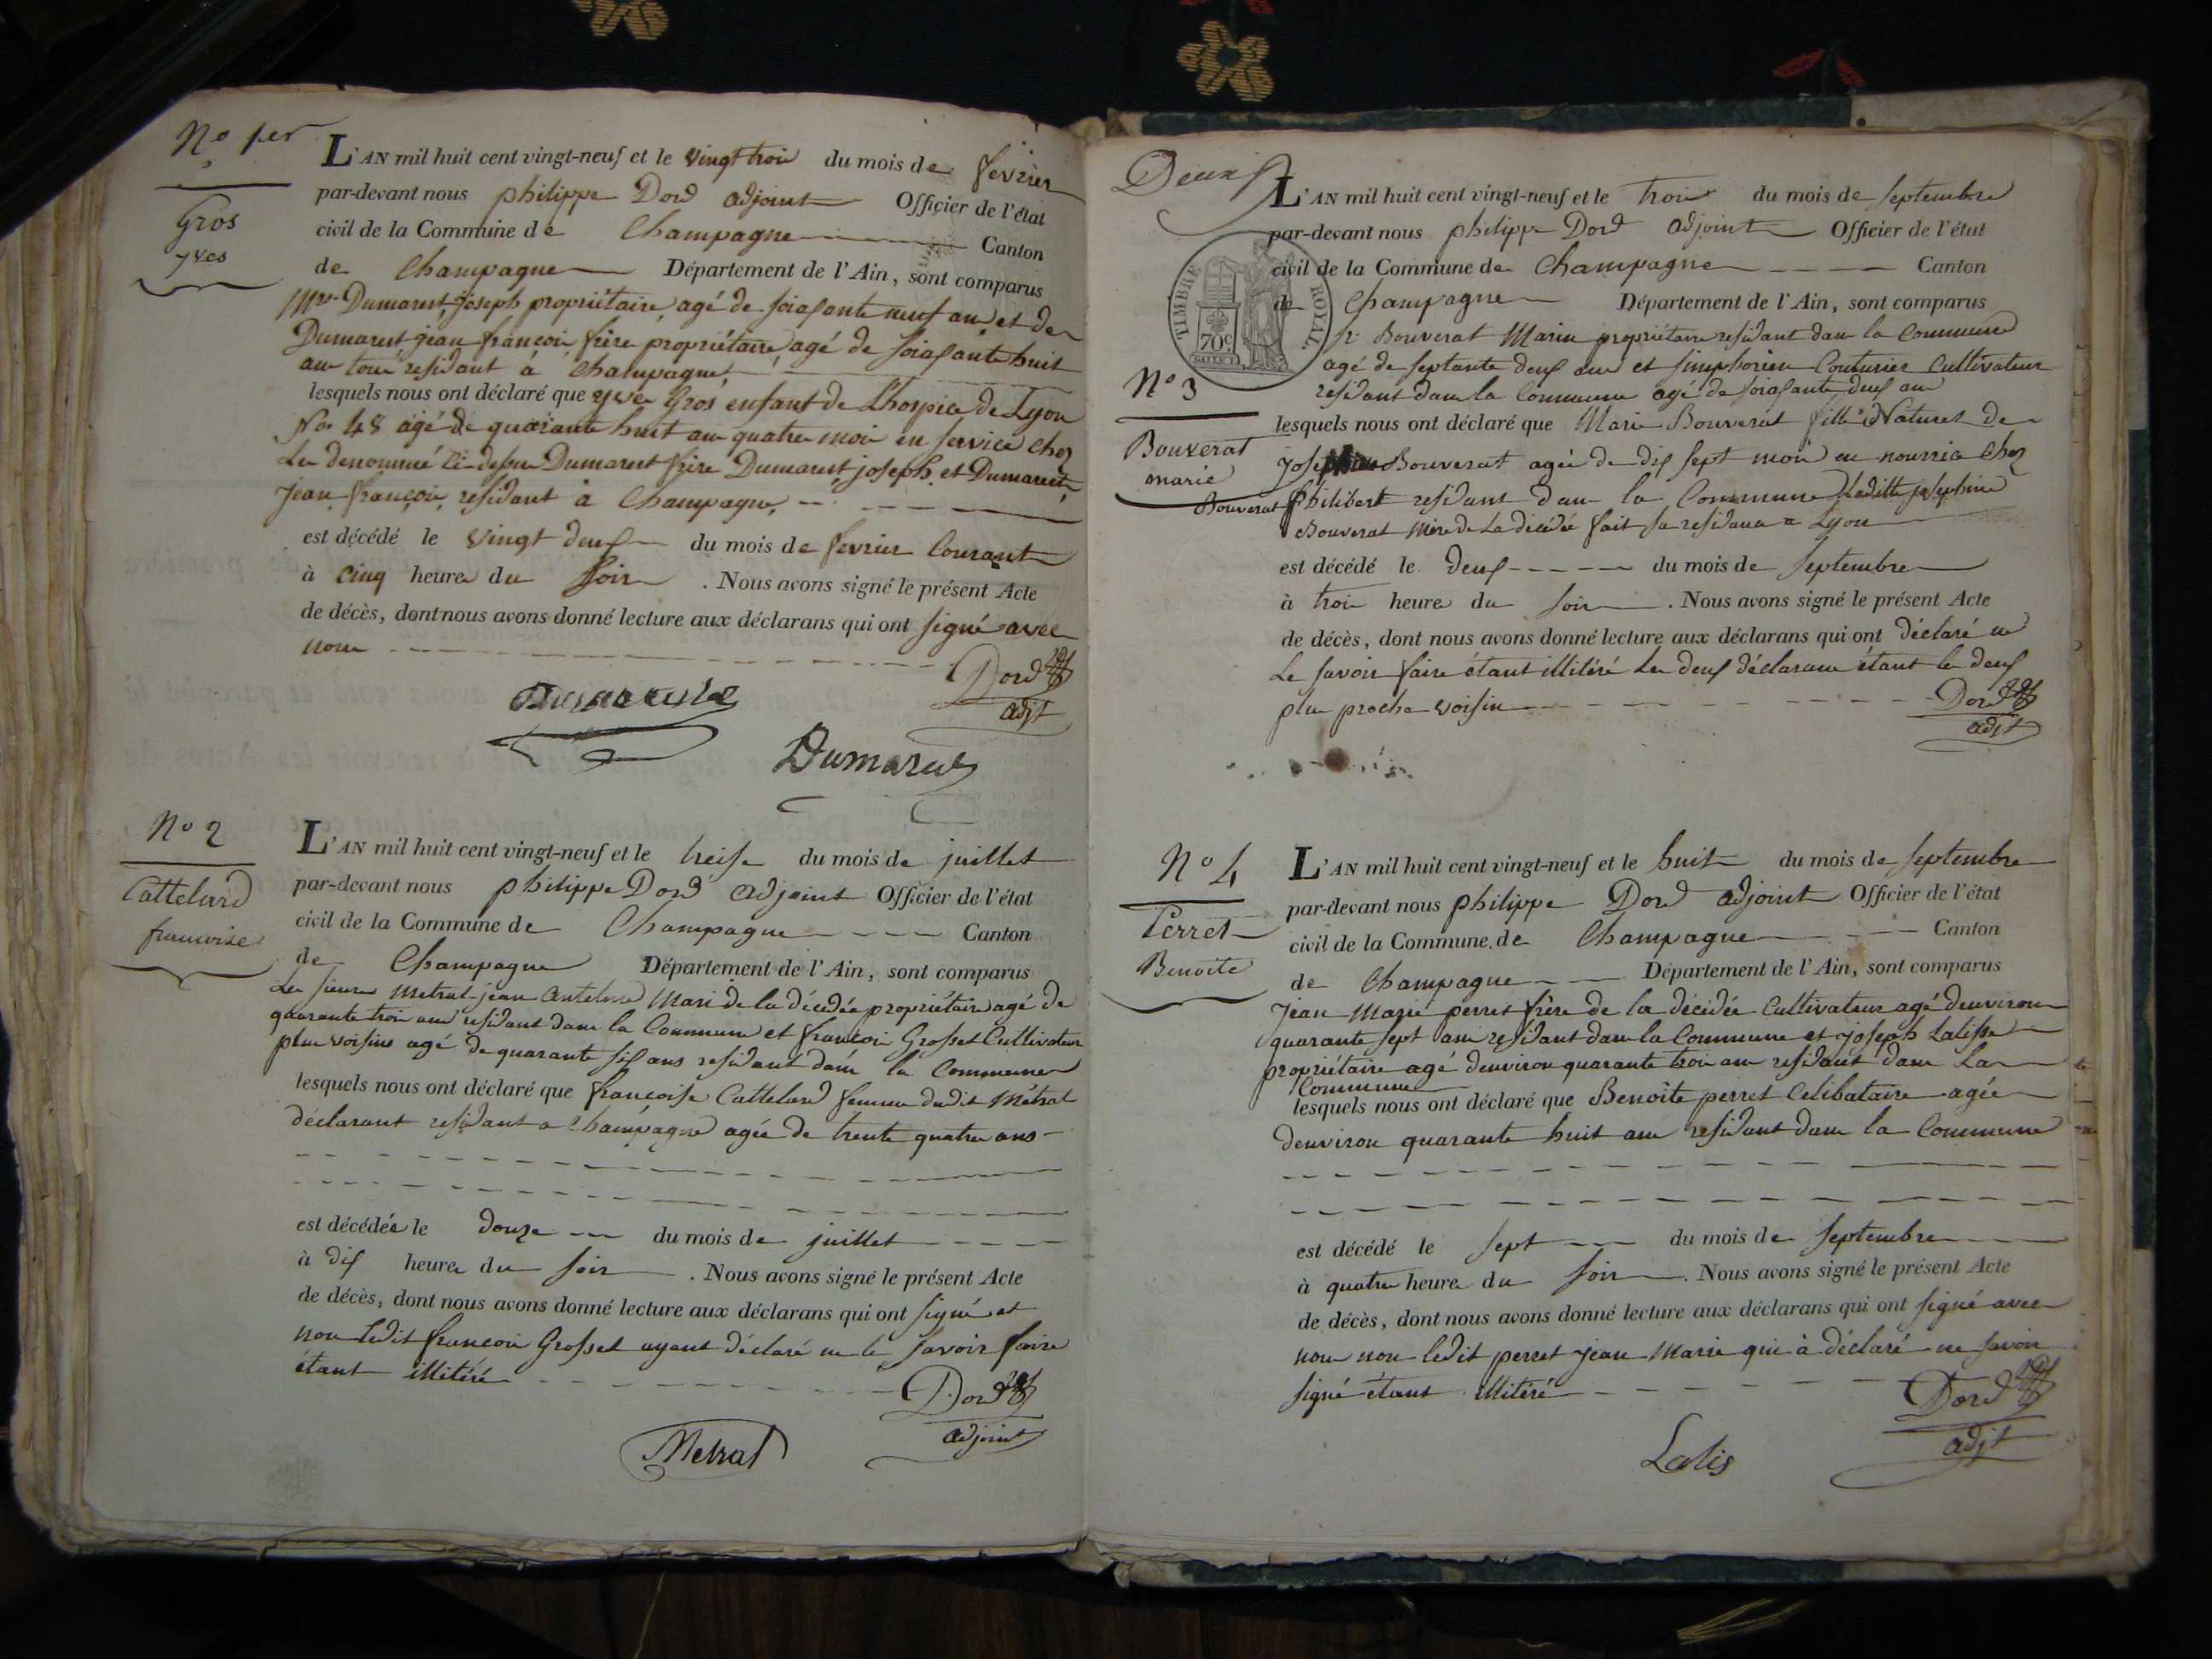 No 1er
Gros
yves
L'AN mil huit cent vingt-neuf et le vingt trois du mois de fevrier
par-devant nous philippe Dord adjoint Officier de l'état
civil de la Commune de Champagne Canton
de Champagne Département de l'Ain, sont comparus
Mrs Dumarest joseph propriétaire agé de soixante neuf ans et de
Dumarest jean françois frère propriétaire agé de soixante huit
ans tous residant à Champagne
lesquels nous ont déclaré que yves Gros enfant de L'hospice de Lyon
No 48 agé de quarante huit ans quatre mois en service chez
Les denommé ci-dessus Dumarest frère Dumarest joseph et Dumarest
Jean françois residant à Champagne
est décédé le vingt deux du mois de fevrier Courant
à cinq heures du soir . Nous avons signé le présent Acte
de décès, dont nous avons donné lecture aux déclarans qui ont signé avec
nous
Dord
adjt
Dumarest
No 2
Cattelard
francoise
L'AN mil huit cent vingt-neuf et le treise du mois de juillet
par-devant nous philippe Dord adjoint Officier de l'état
civil de la Commune de Champagne Canton
de Champagne Département de l'Ain, sont comparus
Les sieurs Metral jean antelme Mari de la décedée propriétaire agé de
quarante trois ans residant dans la Commune et francois Grosset Cultivateur
plus voisins agé de quarante six ans residant dans la Commune
lesquels nous ont déclaré que francoise Cattelard femme dudit Métral
déclarant residant a Champagne agée de trente quatre ans
est décédée le douze du mois de juillet
à dix heures du soir . Nous avons signé le présent Acte
de décès, dont nous avons donné lecture aux déclarans qui ont signé et
non Ledit francois Grosset ayant déclaré ne le savoir faire
étant illitéré
Dord
adjoint
Metral
Deux
TIMBRE ROYAL
70c
No 3
Bouverat
marie
L'AN mil huit cent vingt-neuf et le trois du mois de septembre
par-devant nous philippe Dord adjoint Officier de l'état
civil de la Commune de Champagne Canton
de Champagne Département de l'Ain, sont comparus
sr Bouverat Marin propriétaire residant dans la Commune
agé de septante deux ans et simphorien Couturier Cultivateur
residant dans la Commune agé de soixante deux ans
lesquels nous ont déclaré que Marie Bouverat fille Naturel de
Josephine Bouverat agée de dix sept mois en nourrice chez
Bouverat philibert residant dans la Commune Laditte josephine
Bouverat mère de La décédée fait sa residance a Lyon
est décédé le deux du mois de septembre
à trois heures du soir . Nous avons signé le présent Acte
de décès, dont nous avons donné lecture aux déclarans qui ont déclaré ne
Le savoir faire étant illitéré Les deux déclarans étant les deux
plus proche voisin
Dord
adjt
No 4
Perret
Benoite
L'AN mil huit cent vingt-neuf et le huit du mois de septembre
par-devant nous philippe Dord adjoint Officier de l'état
civil de la Commune de Champagne Canton
de Champagne Département de l'Ain, sont comparus
Jean Marie perret frère de la décédée Cultivateur agé denviron
quarante sept ans residant dans la Commune et joseph Lalisse
propriétaire agé denviron quarante trois ans residant dans La
Commune
lesquels nous ont déclaré que Benoite perret Celibataire agée
denviron quarante huit ans residant dans la Commune
est décédé le sept du mois de septembre
à quatre heures du soir . Nous avons signé le présent Acte
de décès, dont nous avons donné lecture aux déclarans qui ont signé avec
nous non ledit perret jean Marie qui à déclaré ne savoir
signé étant illitéré
Dord
adjt
Lalis